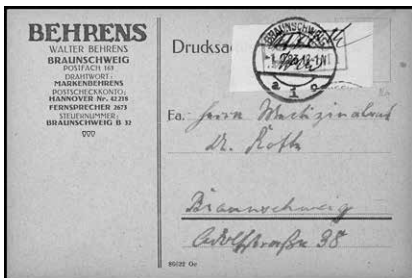 BEHRENS
WALTER BEHRENS
BRAUNSCHWEIG
POSTFACH 163
DRAHTWORT:
MARKENBEHRENS
POSTSCHECKKONTO:
HANNOVER Nr. 42218
FERNSPRECHER 2673
STEUERNUMMER:
BRAUNSCHWEIG B 32
Drucksac
BRAUNSCHWEIG
Ea. Herrn Medizinalrat
Dr. Roth
Braunschweig
Adolfstraße 38